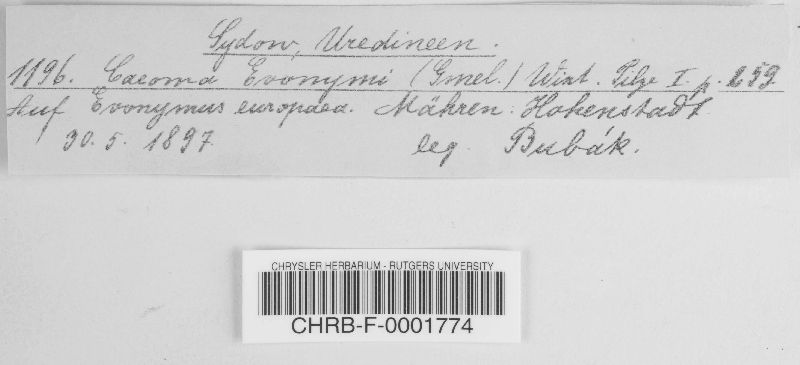 Sydow, Uredineen.
1196. Caeoma Evonymi (Gmel.) Wint. Pilze I. p. 259
Auf Evonymus europaea. Mähren: Hohenstadt
30. 5. 1897. leg. Bubák.
CHRYSLER HERBARIUM - RUTGERS UNIVERSITY
CHRB-F-0001774